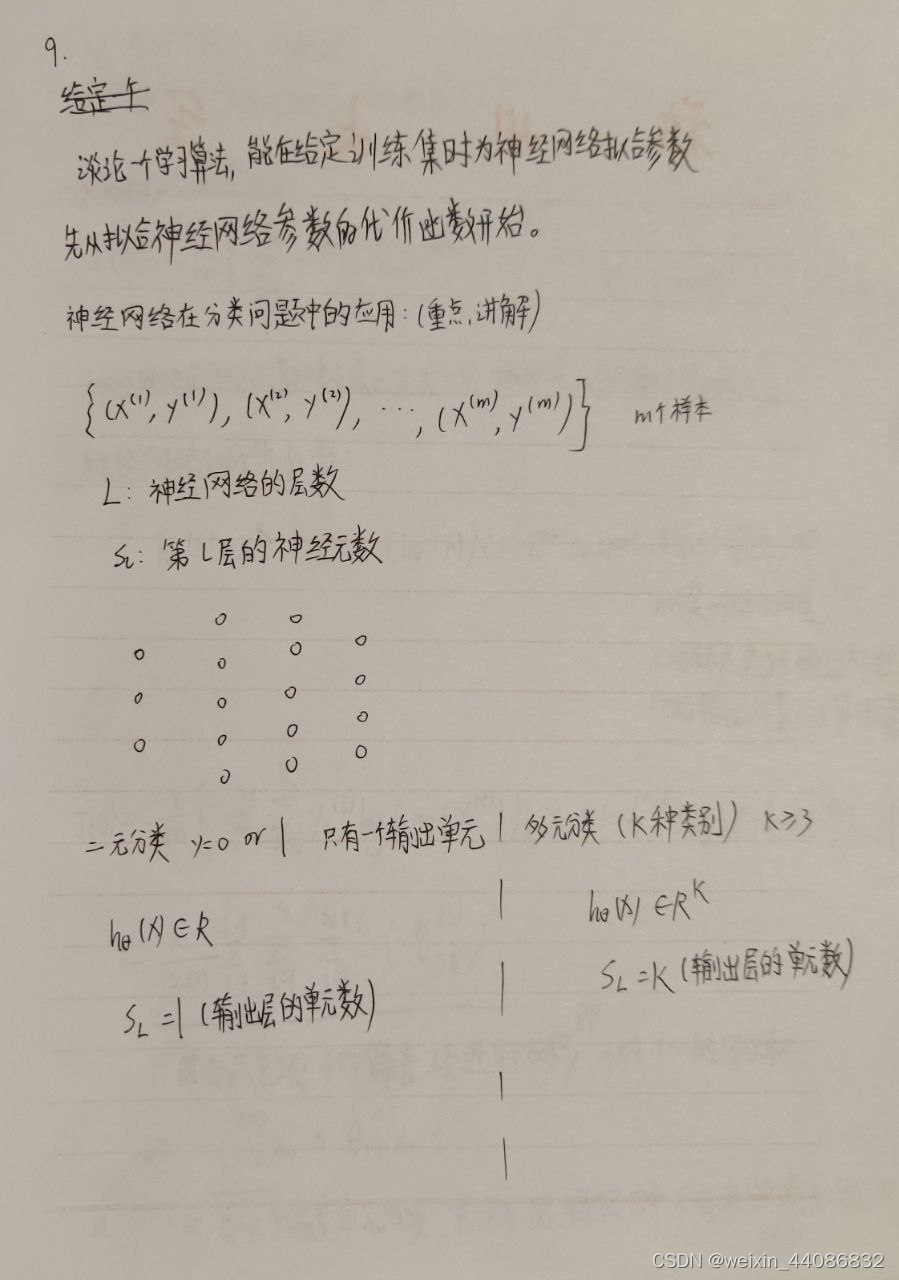 9.
给定一个
谈论一个学习算法,能在给定训练集时为神经网络拟合参数
先从拟合神经网络参数的代价函数开始。
神经网络在分类问题中的应用:(重点讲解)
{(x^(1), y^(1)), (x^(2), y^(2)), ..., (x^(m), y^(m))} m个样本
L: 神经网络的层数
S_L: 第L层的神经元数
二元分类 y=0 or 1 只有一个输出单元 | 多元分类 (K种类别) K≥3
h_θ(x) ∈ R | h_θ(x) ∈ R^K
S_L = 1 (输出层的单元数) | S_L = K (输出层的单元数)
CSDN @weixin_44086832